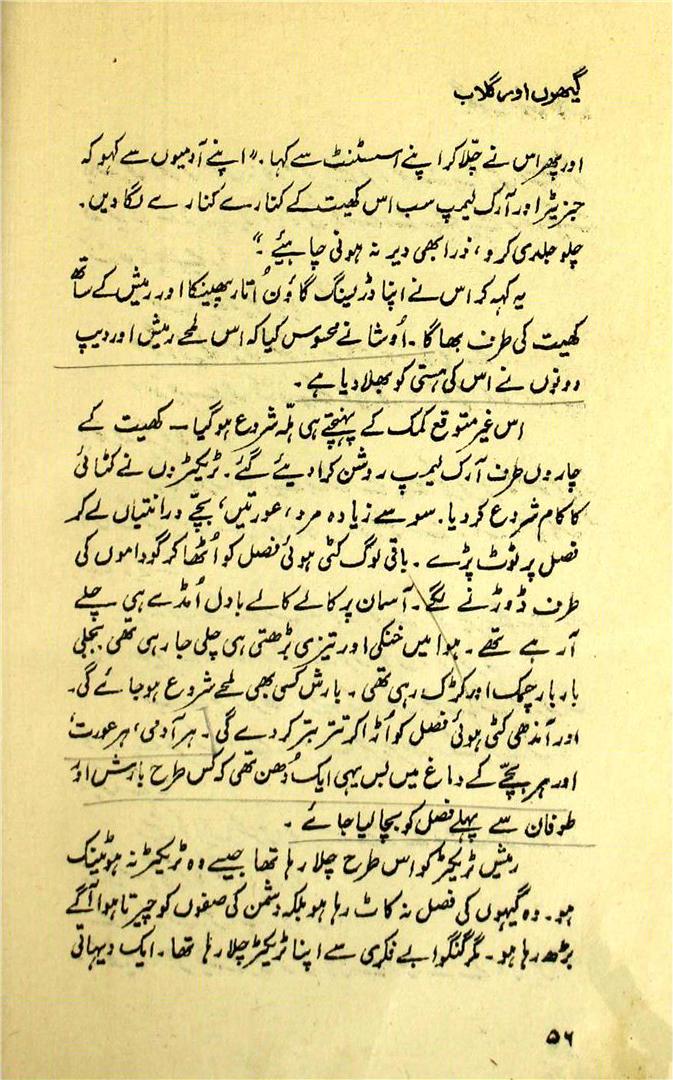 گیہوں اور گلاب
اور پھر اس نے چلّا کر اپنے اسسٹنٹ سے کہا۔ "اپنے آدمیوں سے کہو کہ
جنریٹر اور آرک لیمپ سب اس کھیت کے کنارے کنارے لگا دیں۔
چلو جلدی کرو، ذرا بھی دیر نہ ہونی چاہیئے۔"
یہ کہہ کر اس نے اپنا ڈریسنگ گاؤن اُتار پھینکا اور رمیش کے ساتھ
کھیت کی طرف بھاگا۔ اُوشا نے محسوس کیا کہ اس لمحے رمیش اور دیپ
دونوں نے اس کی ہستی کو بھلا دیا ہے۔
اس غیر متوقع کمک کے پہنچتے ہی ہلّہ شروع ہو گیا — کھیت کے
چاروں طرف آرک لیمپ روشن کرا دیئے گئے۔ ٹریکٹروں نے کٹائی
کا کام شروع کر دیا۔ سو سے زیادہ مرد، عورتیں، بچّے درانتیاں لے کر
فصل پر ٹوٹ پڑے۔ باقی لوگ کٹی ہوئی فصل کو اُٹھا کر گوداموں کی
طرف دوڑنے لگے۔ آسمان پر کالے کالے بادل اُمڈے ہی چلے
آ رہے تھے۔ ہوا میں خنکی اور تیزی بڑھتی ہی چلی جا رہی تھی بجلی
بار بار چمک اور کڑک رہی تھی۔ بارش کسی بھی لمحے شروع ہو جائے گی۔
اور آندھی کٹی ہوئی فصل کو اُڑا کر تتر بتر کر دے گی۔ ہر آدمی، ہر عورت،
اور ہر بچّے کے دماغ میں بس یہی ایک دُھن تھی کہ کس طرح بارش اور
طوفان سے پہلے فصل کو بچا لیا جائے۔
رمیش ٹریکٹر کو اس طرح چلا رہا تھا جیسے وہ ٹریکٹر نہ ہو ٹینک
ہو۔ وہ گیہوں کی فصل نہ کاٹ رہا ہو بلکہ دشمن کی صفوں کو چیرتا ہوا آگے
بڑھ رہا ہو۔ مگر گنگوا بے فکری سے اپنا ٹریکٹر چلا رہا تھا۔ ایک دیہاتی
۵۶